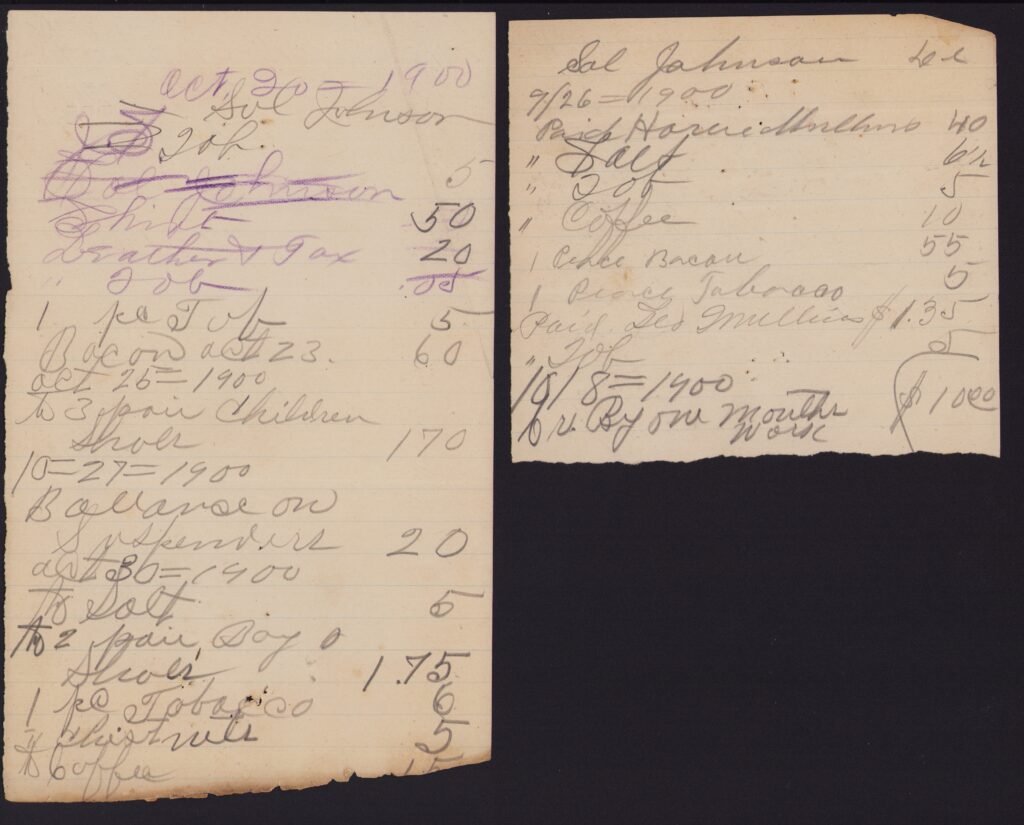 Oct. 20 = 1900
Sol Johnson
Tob. 5
Sol Johnson
Shirt 50
Leather & Tax 20
" Tob 05
1 pc Tob 5
Bacon oct 23. 60
oct 25 = 1900
to 3 pair Children
Shoes 170
10=27=1900
Ballance on
Suspenders 20
oct 30=1900
to Salt 5
to 2 pair Boy
Shoes 1.75
1 pc Tobacco 6
" Chestnuts 5
to Coffee 15
Sol Johnson
9/26=1900
Paid Mullins 40
" Salt
" Tob 5
" Coffee 10
1 Peace Bacon 55
1 Peace Tobacco 5
Paid Geo Mullins $1.35
" Tob 5
10/8=1900
Cr. By one Months $1000
Work